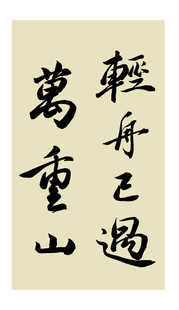 輕舟已過
萬重山